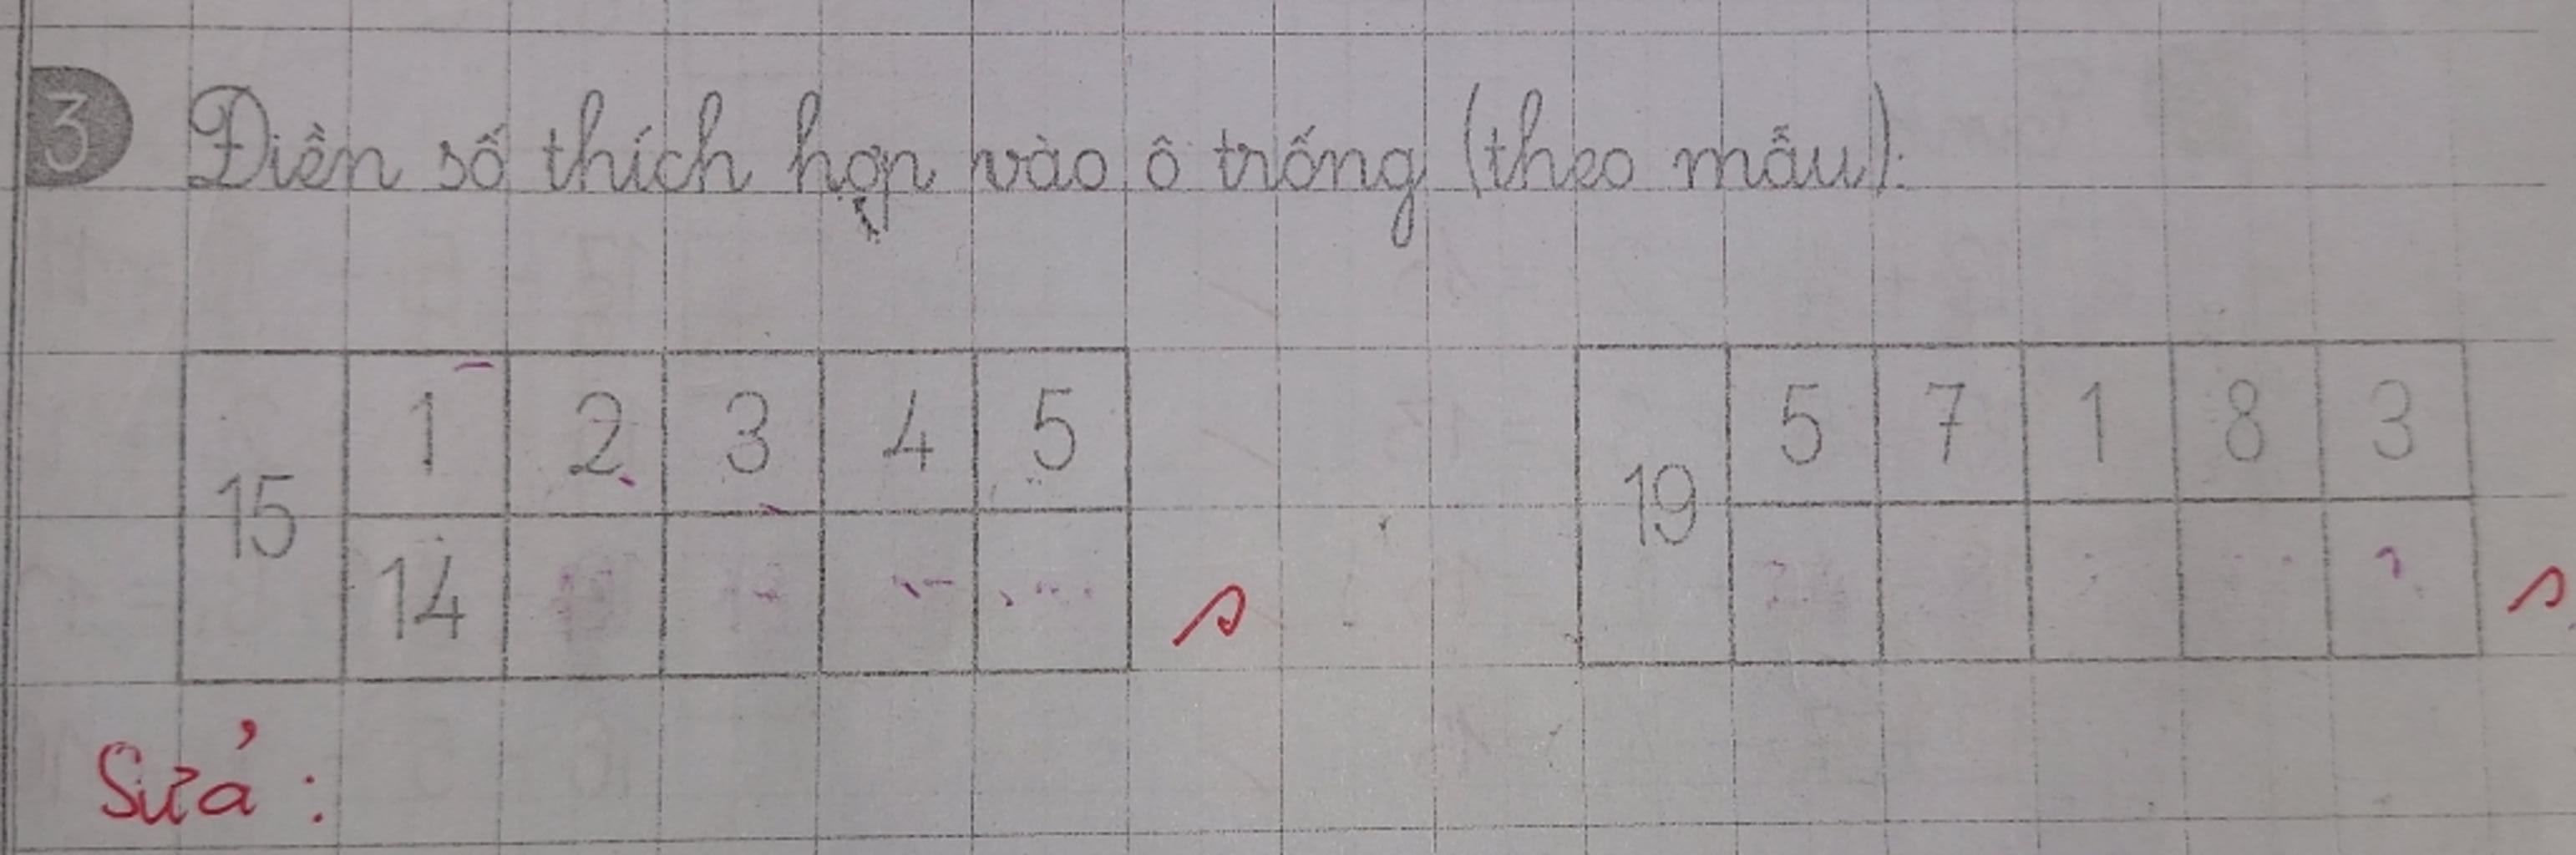 3 Điền số thích hợp vào ô trống (theo mẫu):
1 2 3 4 5 5 7 1 8 3
15 19
14
s s
Sửa: